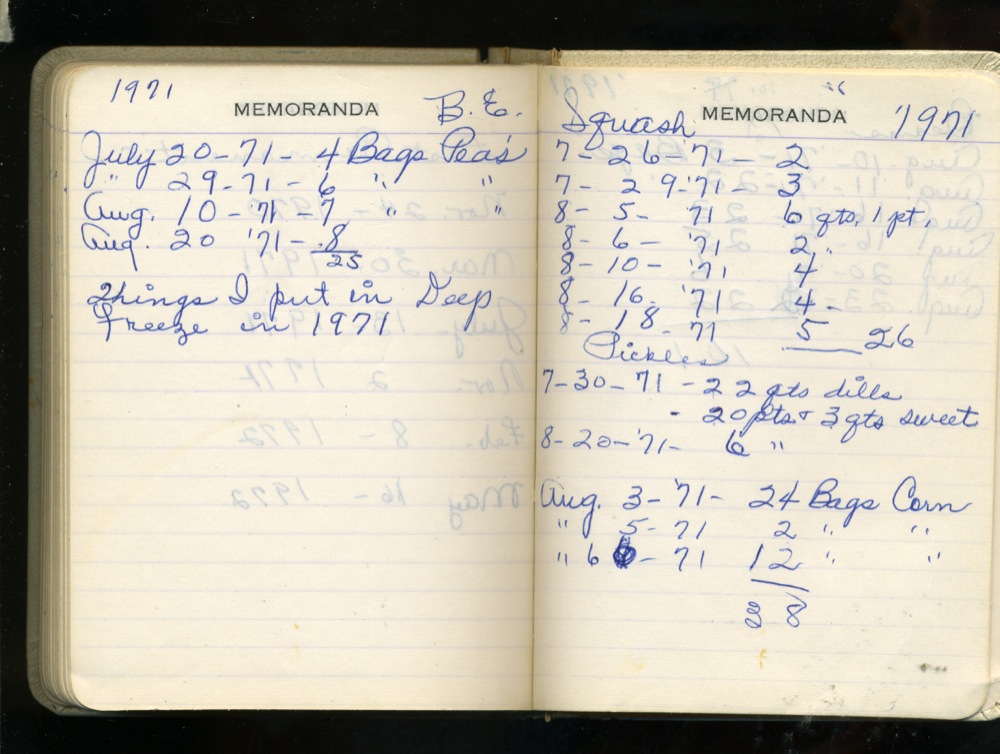 1971
MEMORANDA B.E.
July 20-71- 4 Bags Pea's
" 29-71-6 " "
Aug. 10-'71-7 " "
Aug. 20 '71-.8
25
Things I put in Deep
Freeze in 1971
Squash MEMORANDA '1971
7-26-'71-2
7-29-'71-3
8-5-'71 6 qts, 1 pt,
8-6-'71 2 "
8-10-'71 4
8-16-'71 4-
8-18-71 5 26
Pickles
7-30-71 -22 qts dills
- 20 pts + 3 qts sweet
8-20-'71- 6 "
Aug. 3-'71- 24 Bags Corn
" 5-71 2 " "
" 6 -71 12 " "
38